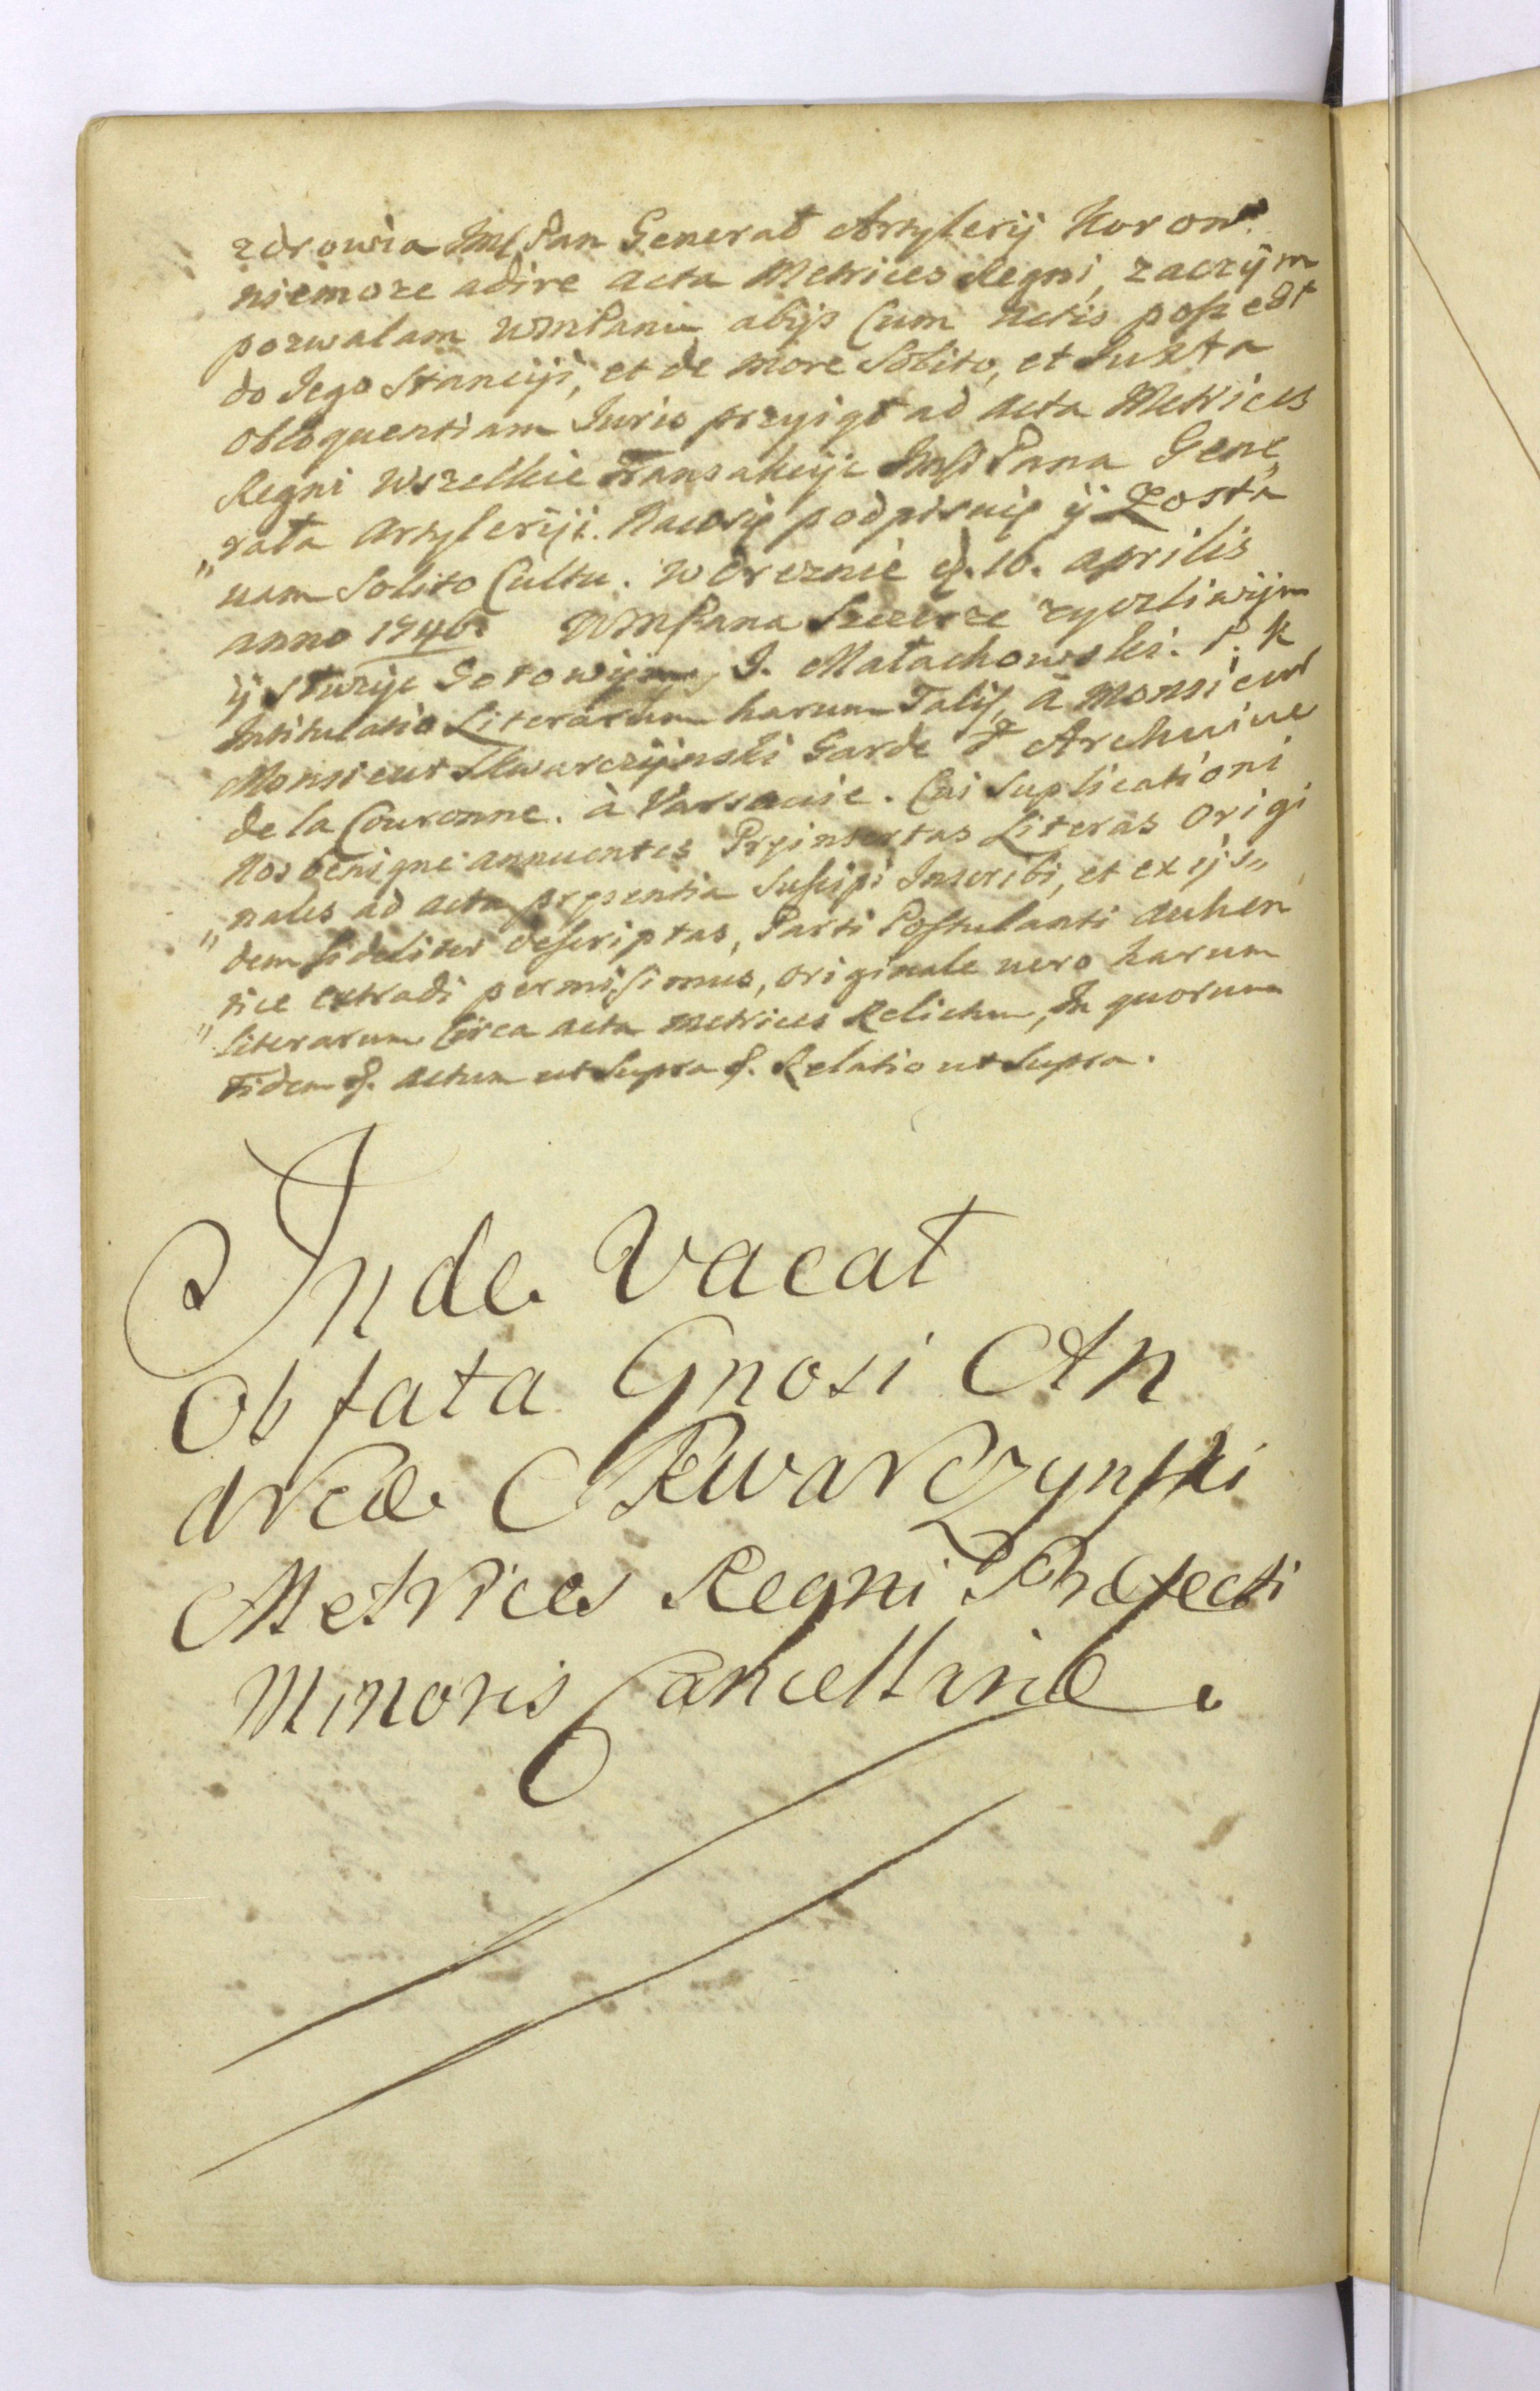 zdrowia Jmć Pan Generał Artyleryj Koron.
niemoze adire acta Metrices Regni, zaczÿm
pozwalam WmPanu abÿs Cum Actis poszedł
do Jego Stancÿi, et de more Solito, et Juxta
obloquentiam Juris przyiął ad acta Metrices
Regni Wszelkie Transakcÿie Jmść Pana Gene„
„rała Artyleriÿi. Na co się podpisuię ÿ Zosta
uam Solito Cultu. w dreznie d. 10. aprilis
anno 1746. WMPana Szczerze zyczliwÿm
ÿ słuzÿć Gotowÿm, J. Małachowski. P. K
Intitulatio Literarum harum Talis, à Monsieur
Monsieur Skwarczÿnski Garde d' Archuiue
de la Couronne. à Varsauie. Cui Suplicationi
Nos benigne annuentes Pręinsertas Literas Origi
„nales ad acta pręsentia Suscipi Inscribi, et ex ijs„
„dem fideliter descriptas, Parti Postulanti authen
tice extradi permisimus, originale uero harum
„literarum Circa acta Metrices Relictum, In quorum
Fidem &. Actum ut Supra &. Relatio ut Supra.
Inde Vacat
Ob fata Gnosi An
dreæ Skwarczynski
Metrices Regni Præfecti
Minoris Cancellariæ.